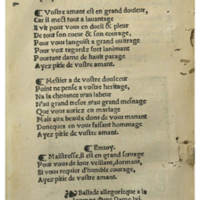 ¶ Vostre amant est en grand douleur,
Car il mect tout a lavantage
A vit pour vous en dueil & pleur
De tout son cueur & son courage,
Pour vous languist a grand oultrage
Pour voz regardz fort lanimant
Pourtant dame de hault parage
Ayez pitie de vostre amant.
¶ Mestier a de vostre doulceur
Point ne pense a vostre heritage,
Na la chevance n'a labeur
N'au grand tresor n'au grand mesnage
Que vous contez en mariage
Mais aux beaulx dons de vous manant
Doncques en vous faisant hommage
Ayez pitie de vostre amant.
¶ Envoy.
¶ Maistresse, il est en grand servage
Pour vous de soir veillant, dormant,
Il meurt dennuy d'humble courage,
Ayez pitie de vostre amant.
Ballade allegoricque a la